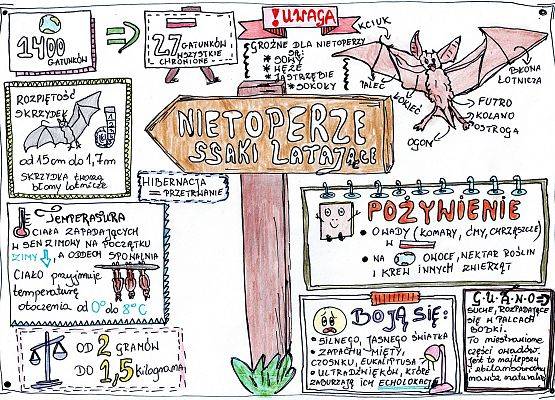 1400
GATUNKÓW
27 GATUNKÓW
WSZYSTKIE
CHRONIONE
! UWAGA
GROŹNE DLA NIETOPERZY
SĄ:
* SOWY
* WĘŻE
* JASTRZĘBIE
* SOKOŁY
KCIUK
PALEC
ŁOKIEĆ
OGON
BŁONA
LOTNICZA
FUTRO
KOLANO
OSTROGA
ROZPIĘTOŚĆ
SKRZYDEŁ
od 15 cm do 1,7 m
SKRZYDŁA tworzą
błony lotnicze
NIETOPERZE
SSAKI LATAJĄCE
HIBERNACJA
= PRZETRWANIE
TEMPERATURA
CIAŁA ZAPADAJĄCYCH
W SEN ZIMOWY NA POCZĄTKU
ZIMY ↓, A ODDECH SPOWALNIA
CIAŁO przyjmuje
temperaturę
otoczenia od 0° do 8°C
OD 2 GRAMÓW
DO 1,5 kilograma
POŻYWIENIE
• OWADY (KOMARY, ĆMY, CHRZĄSZCZE)
W
• NA OWOCE, NEKTAR ROŚLIN
I KREW INNYCH ZWIERZĄT
BOJĄ SIĘ:
• SILNEGO, JASNEGO ŚWIATŁA
• ZAPACHU MIĘTY,
CZOSNKU, EUKALIPTUSA
• ULTRADŹWIĘKÓW, KTÓRE
ZABURZAJĄ ICH ECHOLOKACJĘ
G·U·A·N·O =
SUCHE, ROZPADAJĄCE
SIĘ W PALCACH
BOBKI.
To niestrawione
części owadów.
Jest to najlepszy
nawóz naturalny